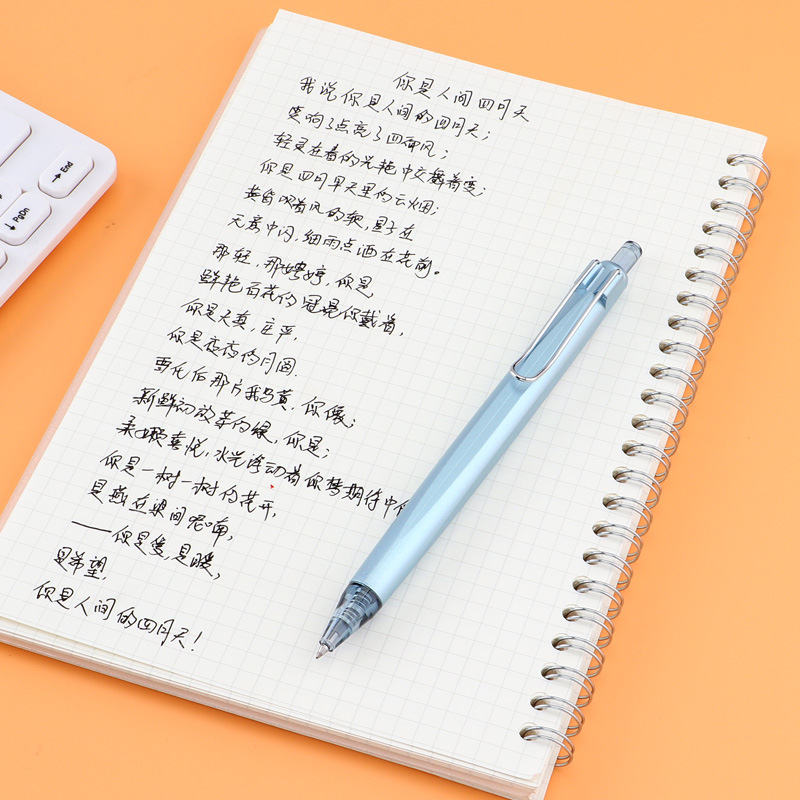 你是人间四月天
我说你是人间的四月天;
笑响了点亮了四面风;
轻灵在春的光艳中交舞着变;
你是四月早天里的云烟;
黄昏吹着风的软,星子在
无意中闪,细雨点洒在花前。
那轻,那娉婷,你是
鲜艳百花的冠冕你戴着,
你是天真,庄严,
你是夜夜的月圆.
雪化后那片鹅黄,你像;
新鲜初放芽的绿,你是;
柔嫩喜悦,水光浮动着你梦期待中
你是一树一树的花开,
是燕在梁间呢喃,
——你是爱,是暖,
是希望,
你是人间的四月天!
End
PgDn